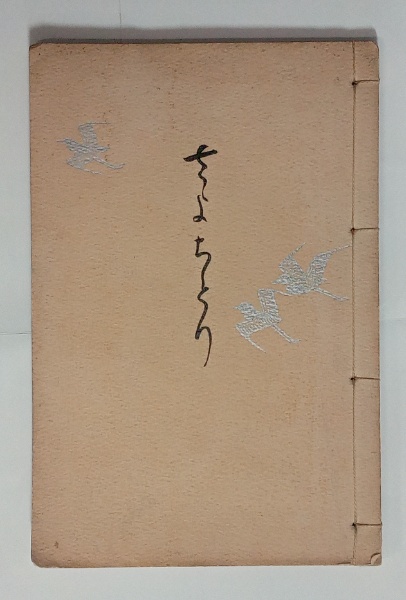 さよちとり